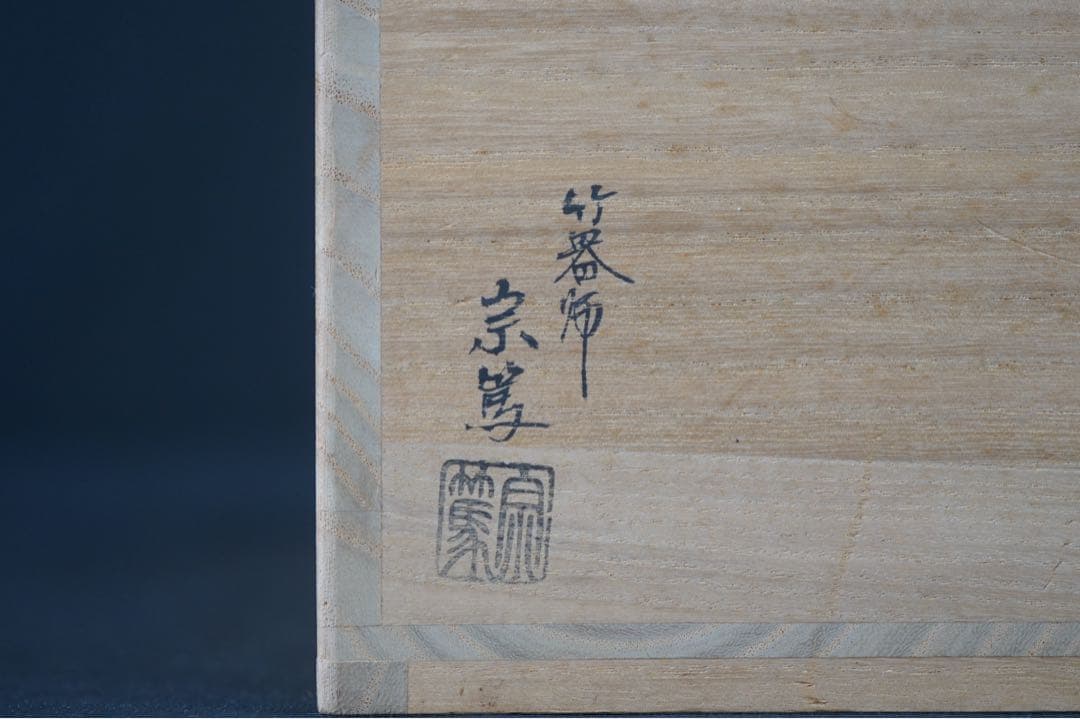 竹器師
宗篤
宗篤